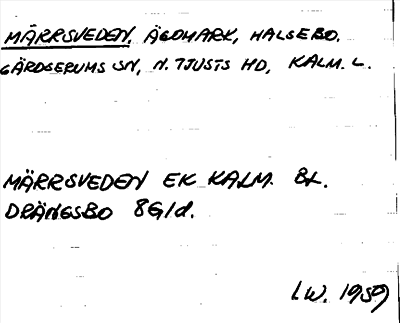 MÄRRSVEDEN. ÄGOMARK, HALSEBO.
GÄRDSERUMS SN, N. TJUSTS HD, KALM. L.
MÄRRSVEDEN EK KALM. BL.
DRÄNGSBO 8G1d.
LW. 1959